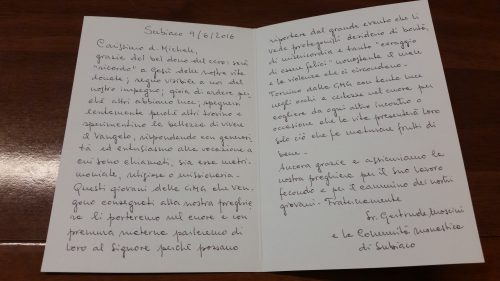 Subiaco 9/6/2016
Carissimo d. Michele,
grazie del bel dono del cero: sarà
"ricordo" a Gesù delle nostre vite
donate; segno visibile a noi del
nostro impegno; gioia di ardere per-
ché altri abbiano luce; spegnersi
lentamente perché altri trovino e
sperimentino la bellezza di vivere
il Vangelo, rispondendo con generosi
tà ed entusiasmo alla vocazione a
cui sono chiamati, sia essa matri-
moniale, religiosa o missionaria.
Questi giovani della GMG che ven-
gono consegnati alla nostra preghie
ra li porteremo nel cuore e con
premura materna parleremo di
loro al Signore perché possano
riportare dal grande evento che li
vede protagonisti desiderio di bontà,
di misericordia e tanto "coraggio
di essere felici" nonostante il male
e la violenza che ci circondano.
Tornino dalla GMG con tanta luce
negli occhi e certezza nel cuore per
cogliere da ogni altro incontro o
occasione che la vita presenterà loro
solo ciò che fa maturare frutti di
bene.
Ancora grazie e assicuriamo la
nostra preghiera per il suo lavoro
fecondo e per il cammino dei nostri
giovani. Fraternamente
Sr. Gertrude
e la Comunità monastica
di Subiaco